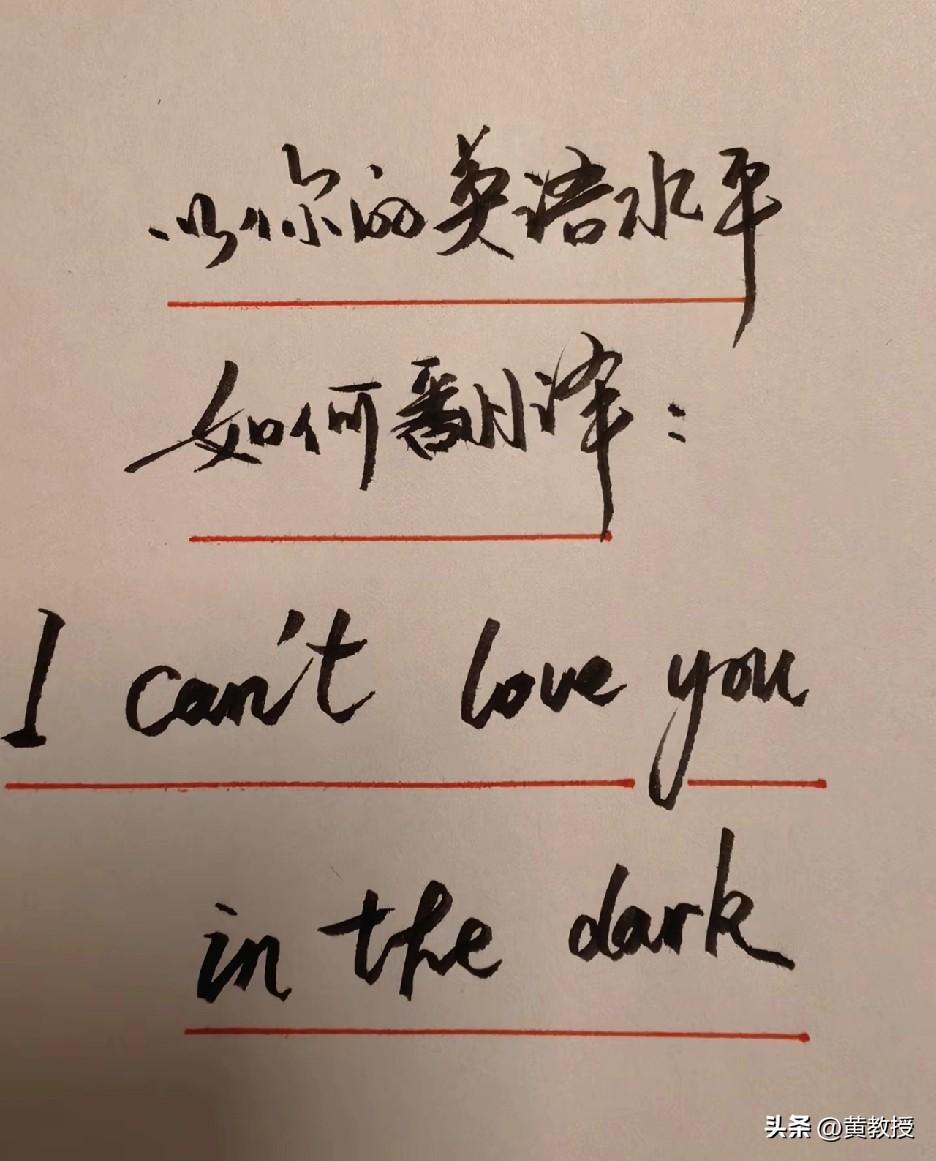 以你的英语水平
如何翻译:
I can't love you
in the dark
头条 @黄教授